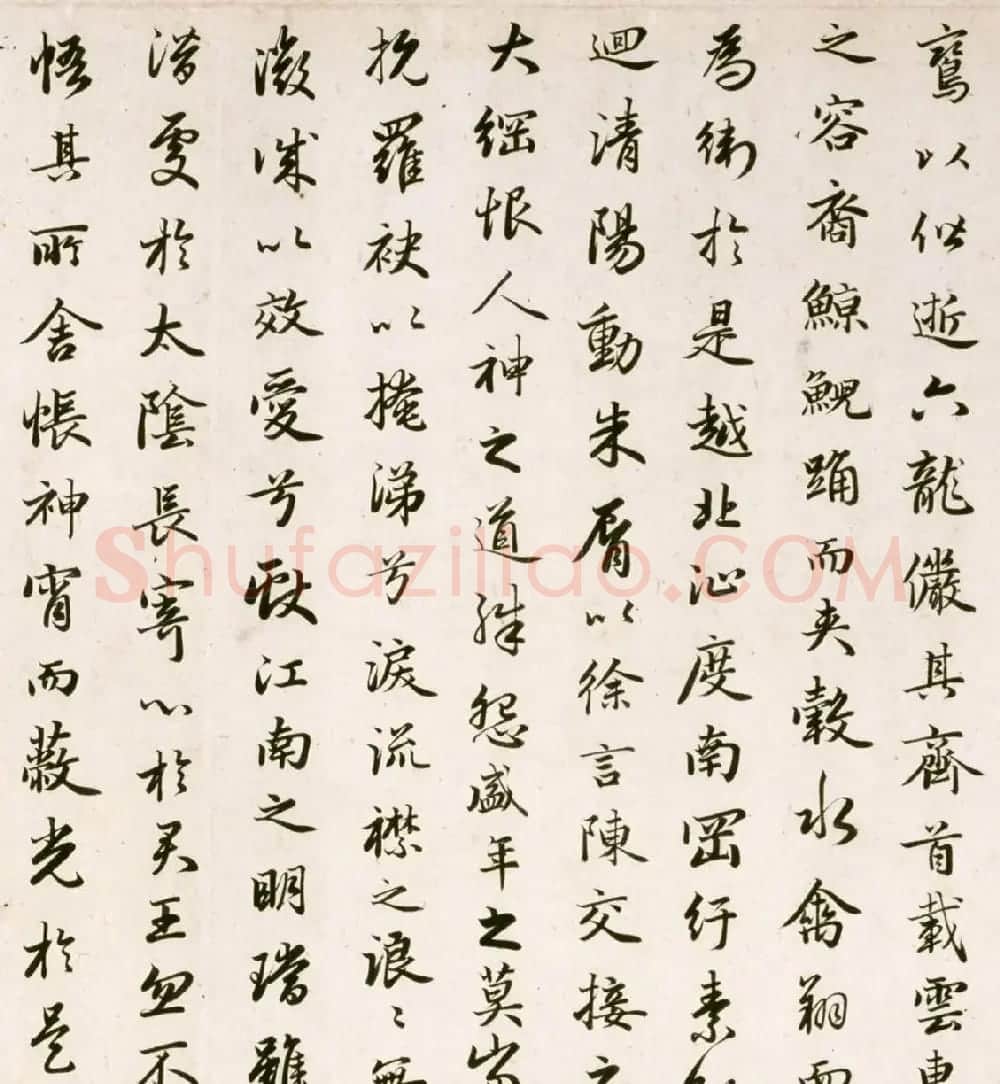 鸞以偕逝六龍儼其齊首載雲車
之容裔鯨鯢踊而夾轂水禽翔而
為衛於是越北沚度南岡紆素
迴清陽動朱脣以徐言陳交接之
大綱恨人神之道殊怨盛年之莫當
抗羅袂以掩涕兮淚流襟之浪〻無
微誠以效愛兮獻江南之明璫雖
潛處於太陰長寄心於君王忽不
悟其所舍悵神宵而蔽光於是
Shufaziliao.COM